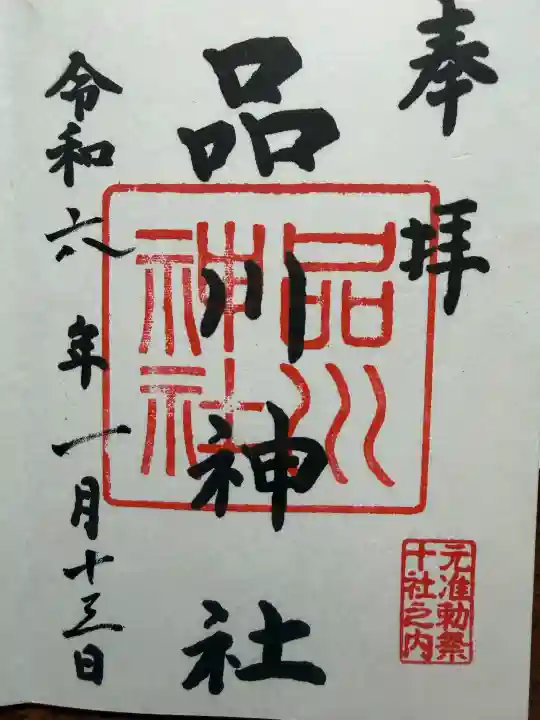 奉拝
品川神社
令和六年一月十三日
品川
神社
元准勅祭
十社之内